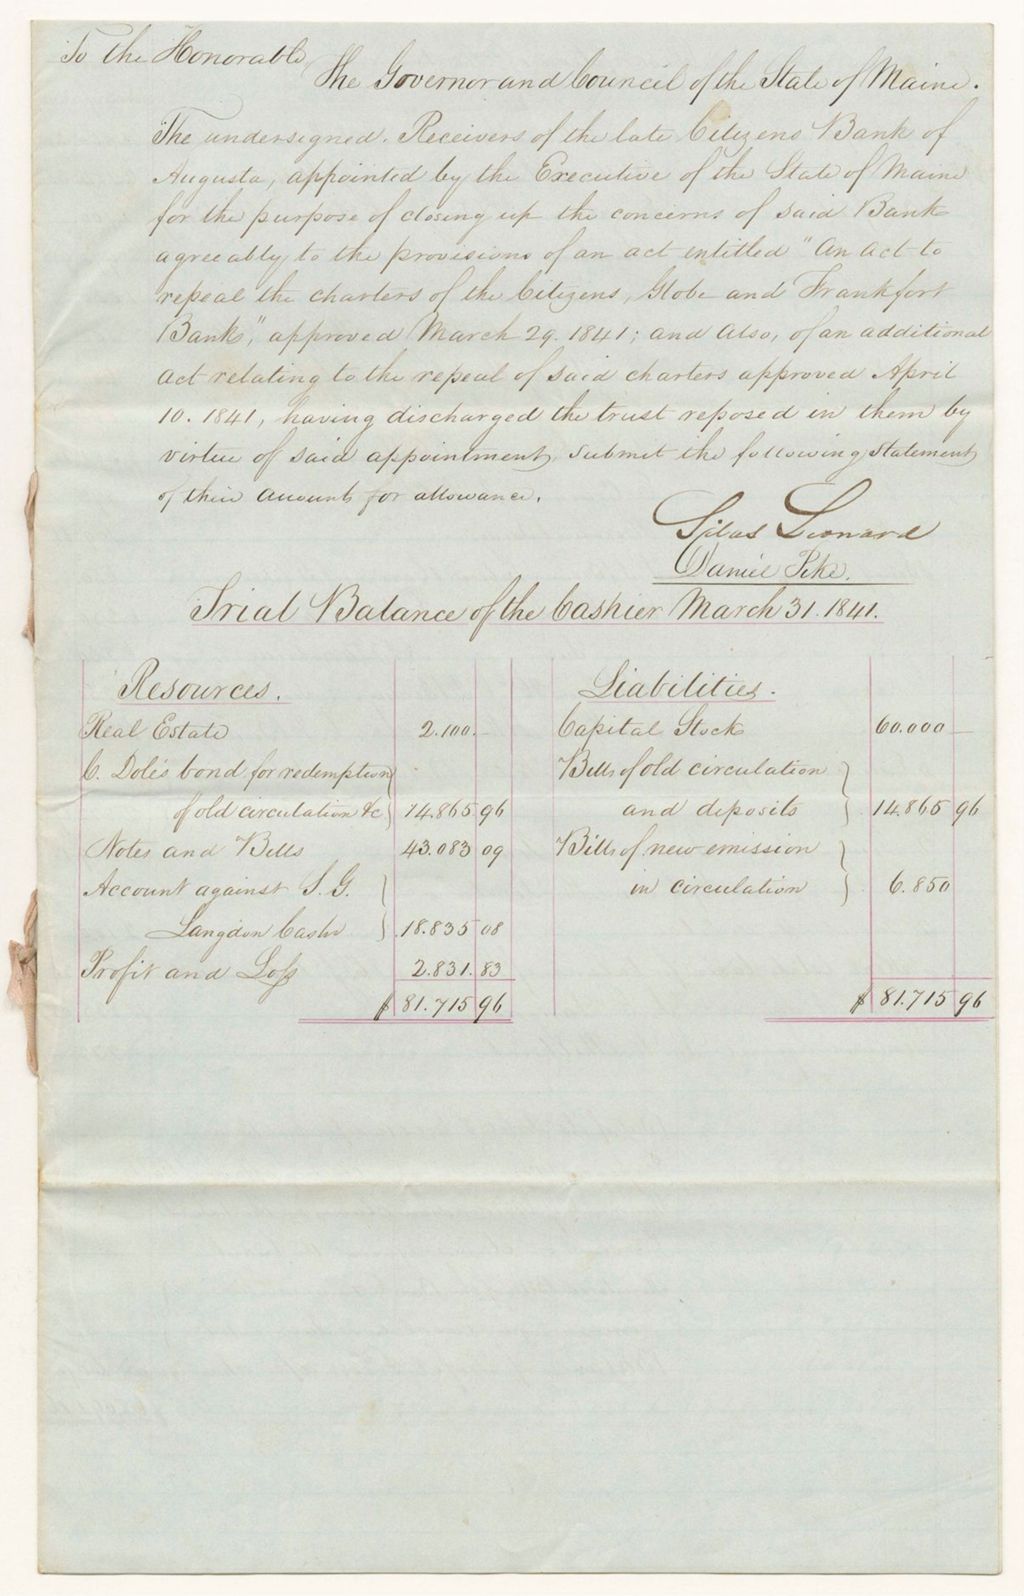 To the Honorable
The Governor and Council of the State of Maine.
The undersigned. Receivers of the late Citizens Bank of
Augusta, appointed by the Executive of the State of Maine
for the purpose of closing up the concerns of said Bank
agreeably to the provisions of an act entitled "An Act to
repeal the charters of the Citizens, Globe and Frankfort
Banks," approved March 29. 1841; and also, of an additional
act relating to the repeal of said charters approved April
10. 1841, having discharged the trust reposed in them by
virtue of said appointment, submit the following statement
of their accounts for allowance.
Silas Leonard
Daniel Pike.
Trial Balance of the Cashier March 31. 1841.
Resources.
Real Estate 2.100.—
C. Dole's bond for redemption
of old circulation &c 14.865 96
Notes and Bills 43.083 09
Account against S. G.
Langdon Cashr 18.835 08
Profit and Loss 2.831. 83
$ 81.715 96
Liabilities.
Capital Stock 60.000 —
Bills of old circulation
and deposits 14.865 96
Bills of new emission
in circulation 6.850
$ 81.715 96